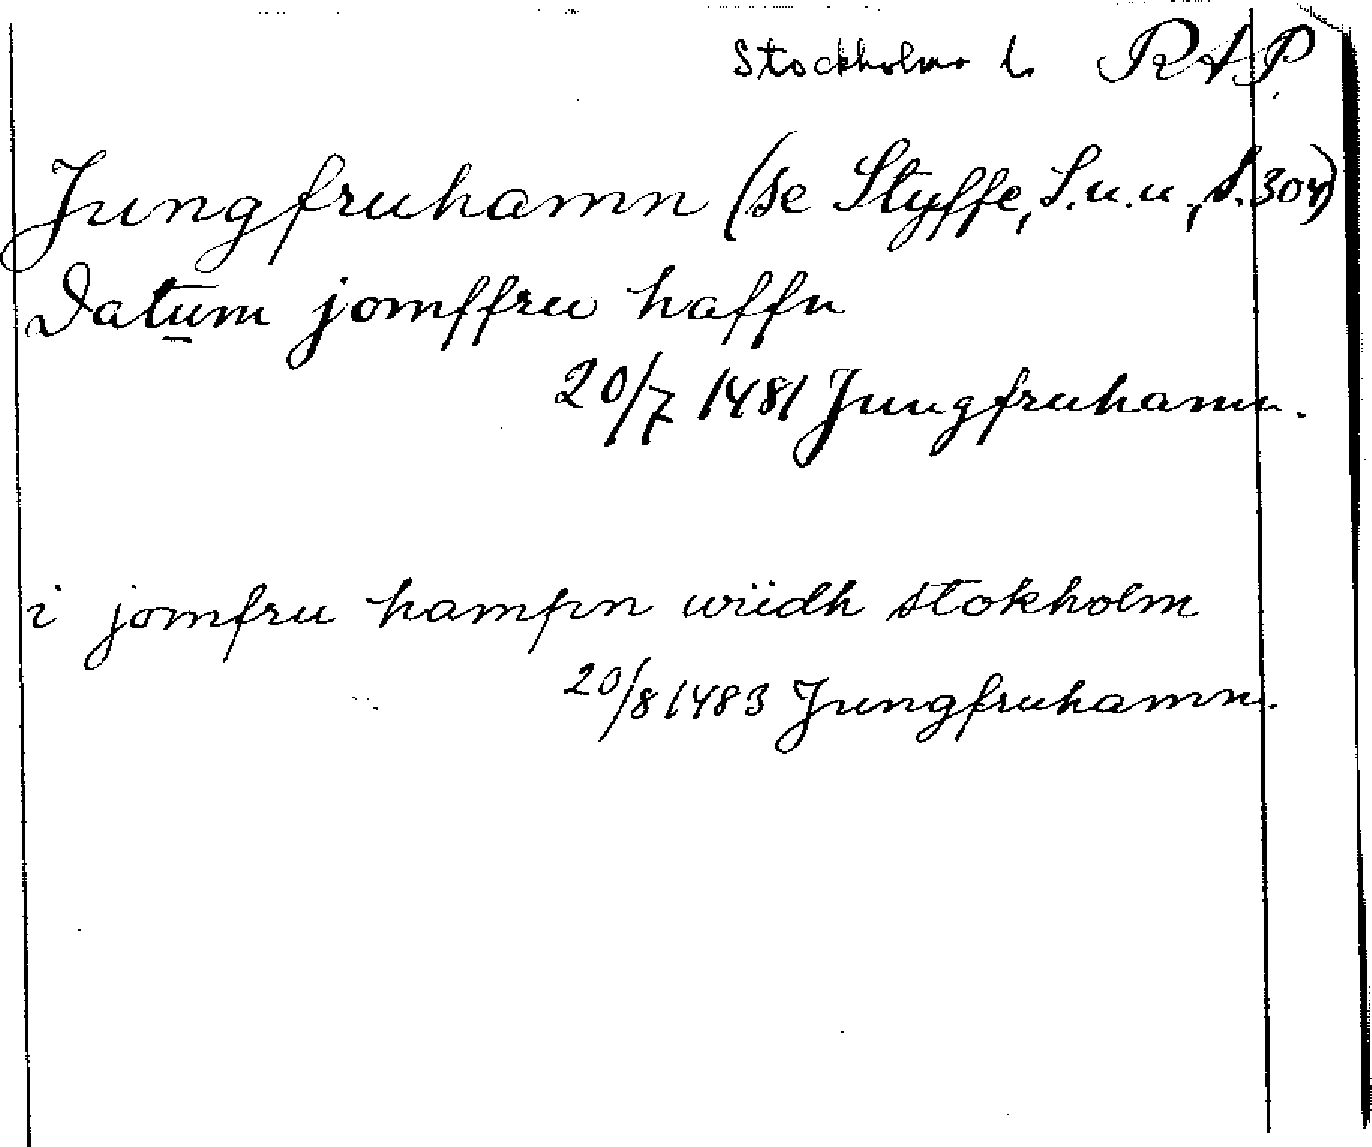 Stockholms l. RAP.
Jungfruhamn (se Styffe, S.u.u., s. 304)
Datum jomffru haffn
20/7 1481 Jungfruhamn.
i jomfru hampn wiidh stokholm
20/8 1483 Jungfruhamn.